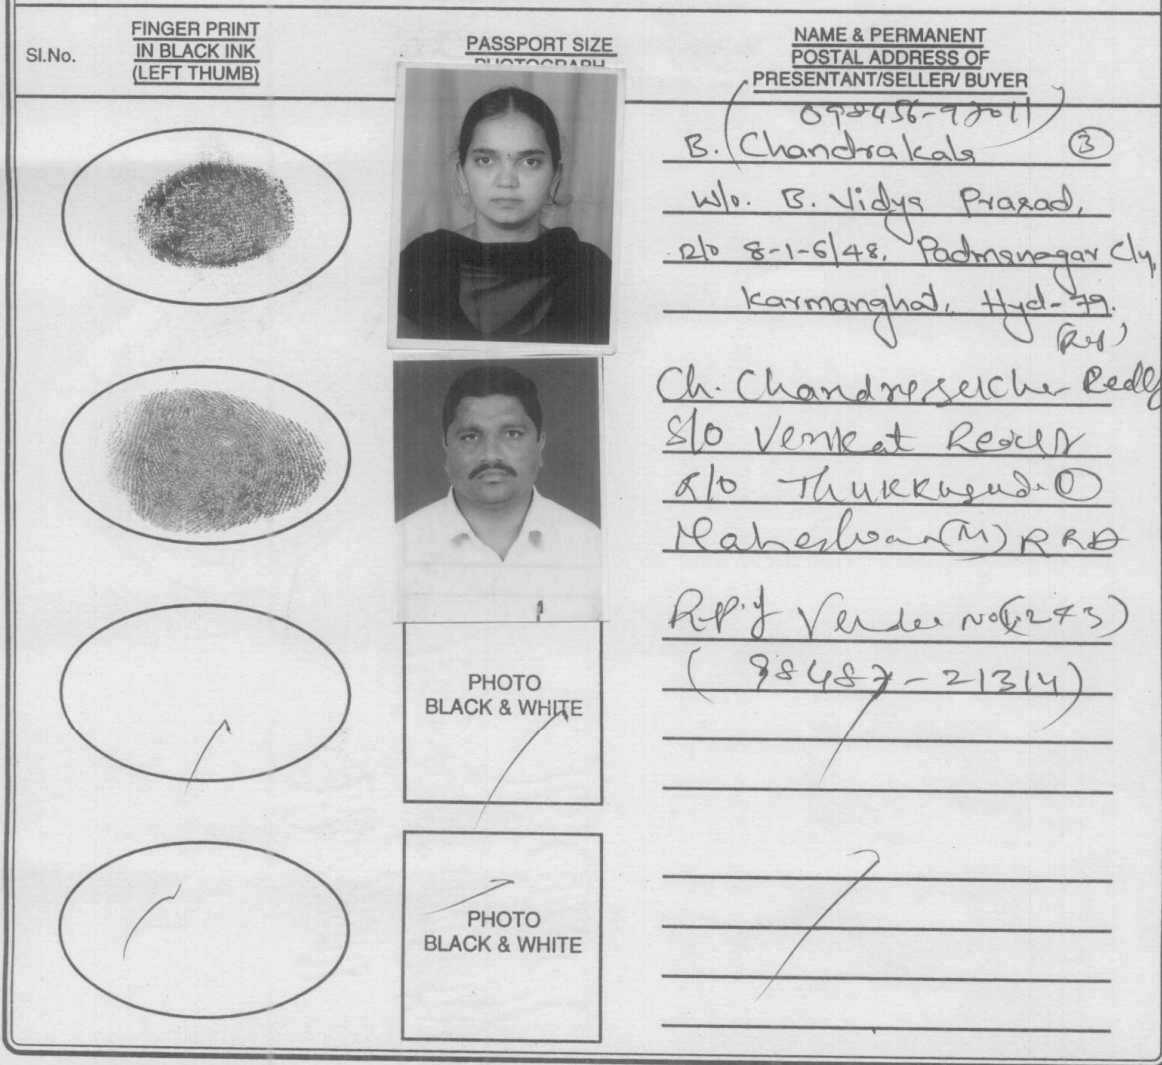 Sl.No.
FINGER PRINT
IN BLACK INK
(LEFT THUMB)
PASSPORT SIZE
PHOTOGRAPH
NAME & PERMANENT
POSTAL ADDRESS OF
PRESENTANT/SELLER/ BUYER
B. Chandrakala 3
W/o. B. Vidya Prasad,
R/o 8-1-6/48, Padmanagar Cly,
Karmanghat, Hyd-79.
Ch. Chandrasekher Reddy
S/o Venkat Reddy
R/o Thukkuguda 1
Maheshwaram (M) RRD
Vendee No (1,2 & 3)
(98487-21314)
PHOTO
BLACK & WHITE
PHOTO
BLACK & WHITE